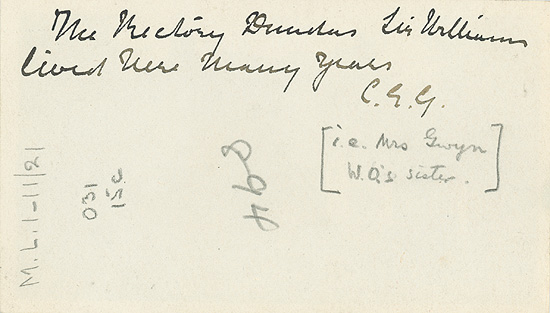 The Rectory Dundas Sir Williams
lived here many years
C.E.G.
[i.e. Mrs Gwyn
W.O's sister.]
M.L. 1-11/21
031
15c
463